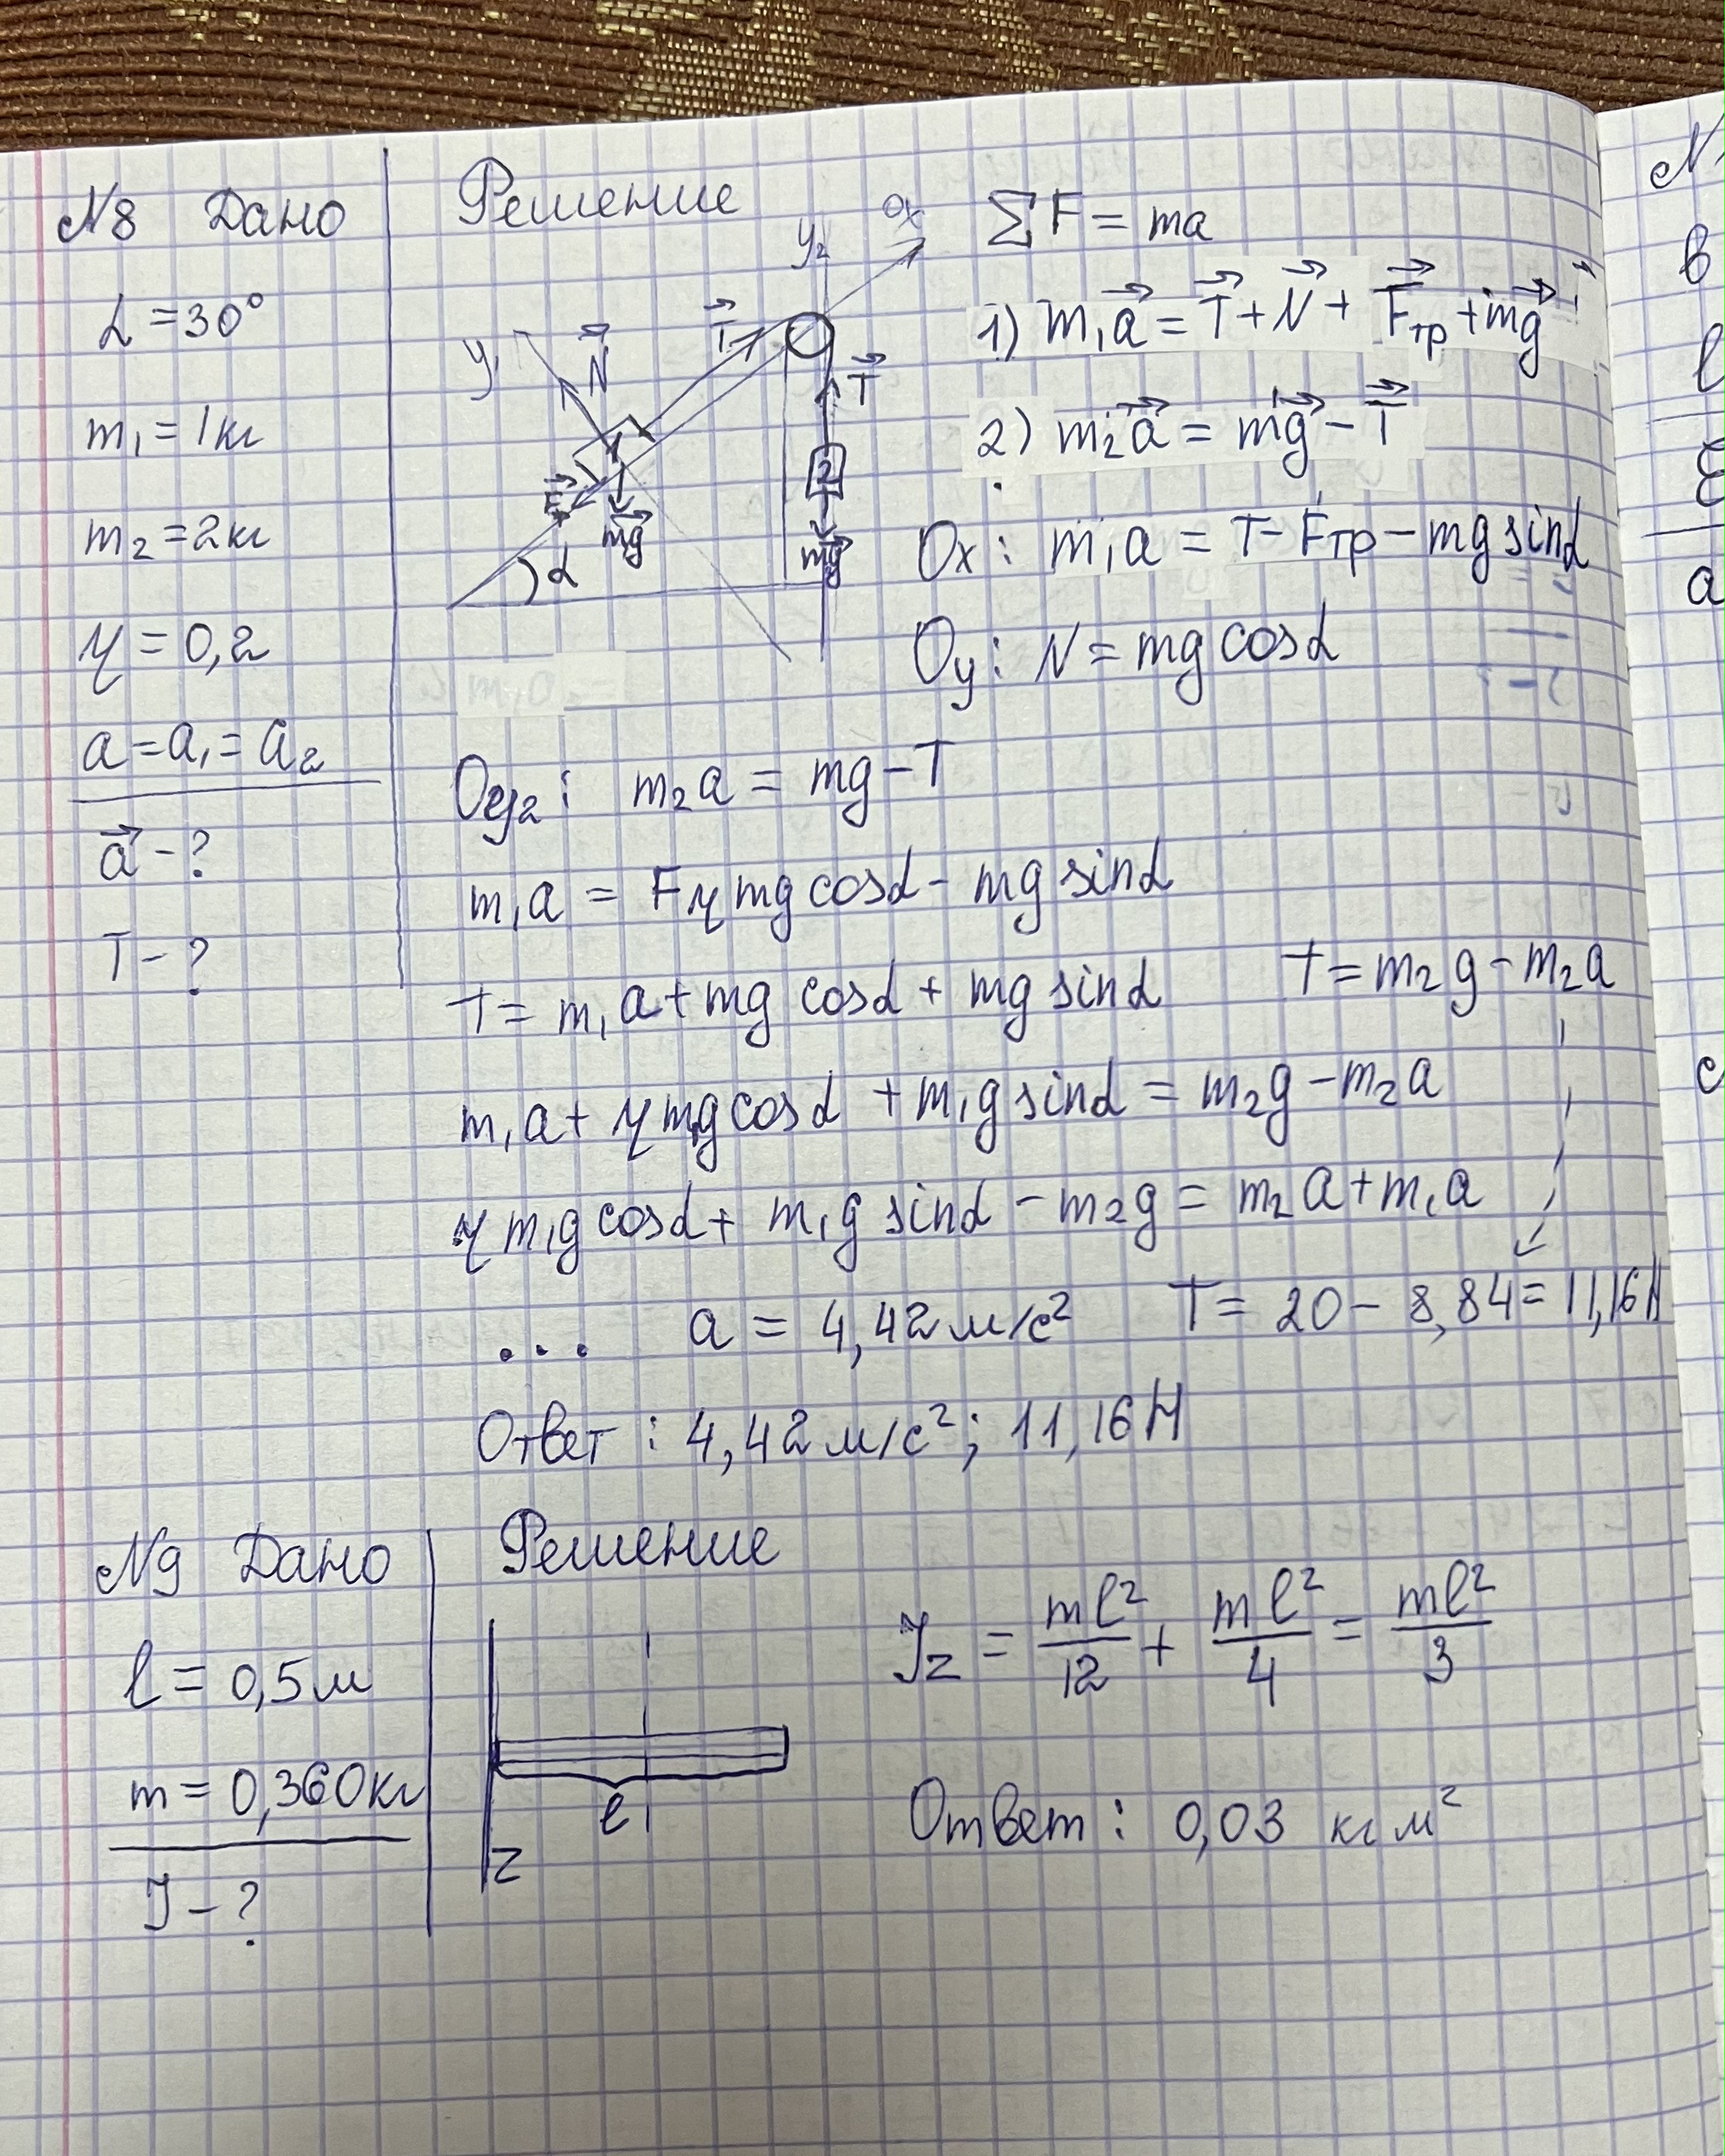 №8 Дано
α = 30°
m₁ = 1 кг
m₂ = 2 кг
η = 0,2
a = a₁ = a₂
a⃗ - ?
T - ?
Решение
y₁ N⃗ T⃗ y₂ Ox
T⃗
1 2
F⃗ mg⃗ mg⃗
α
∑F = ma
1) m₁a⃗ = T⃗ + N⃗ + F⃗тр + mg⃗
2) m₂a⃗ = mg⃗ - T⃗
Ox: m₁a = T - Fтр - mg sinα
Oy: N = mg cosα
Oy₂: m₂a = mg - T
m₁a = Fη mg cosα - mg sinα
T = m₁a + mg cosα + mg sinα T = m₂g - m₂a
m₁a + η mg cosα + m₁g sinα = m₂g - m₂a
η m₁g cosα + m₁g sinα - m₂g = m₂a + m₁a
... a = 4,42 м/с² T = 20 - 8,84 = 11,16 Н
Ответ: 4,42 м/с²; 11,16 Н
№9 Дано
l = 0,5 м
m = 0,360 кг
J - ?
Решение
l
z
Jz = ml²/12 + ml²/4 = ml²/3
Ответ: 0,03 кг м²
№
в
l
ξ
a
с